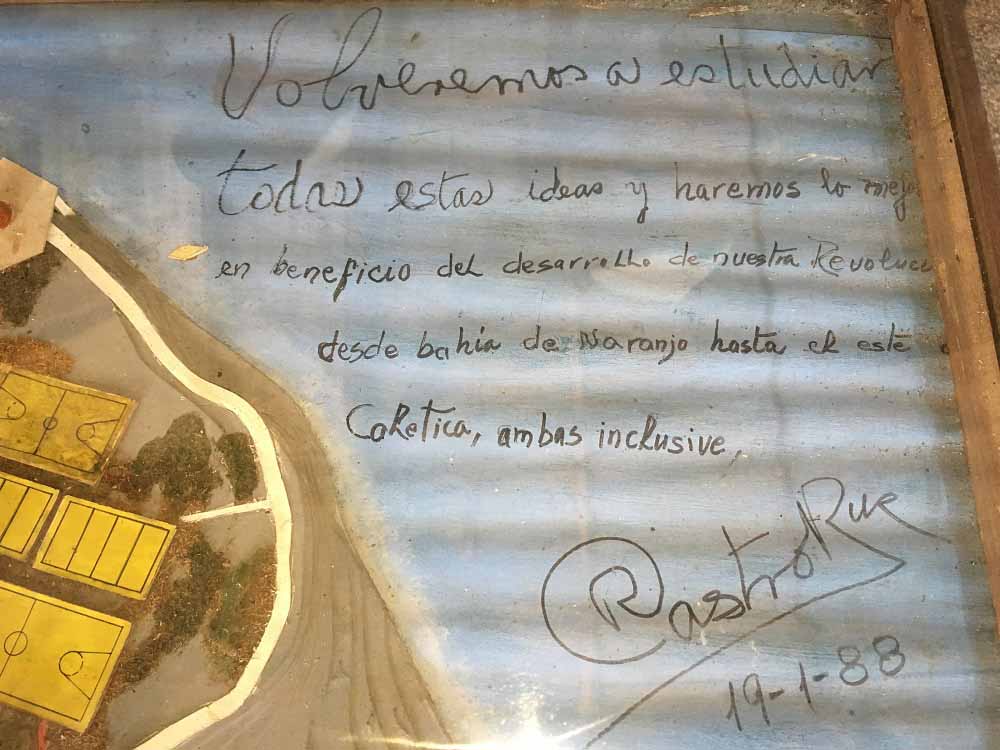 Volveremos a estudiar
todas estas ideas y haremos lo mejo
en beneficio del desarrollo de nuestra Revoluci
desde bahía de Naranjo hasta el este
Caletica, ambas inclusive,
RCastro Ruz
19-1-88